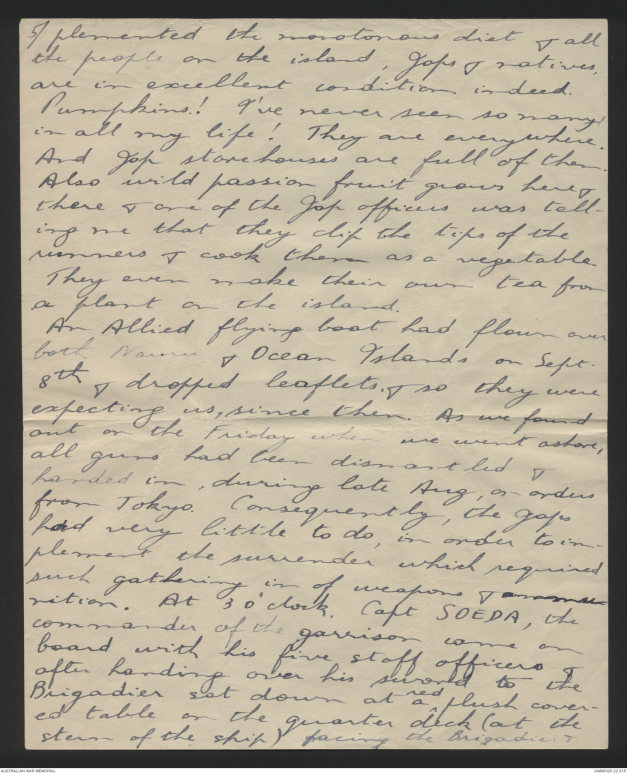 5/ plemented the monotonous diet & all
the people on the island, Japs & natives,
are in excellent condition indeed.
Pumpkins! I've never seen so many
in all my life! They are everywhere.
And Jap storehouses are full of them.
Also wild passion fruit grows here &
there & one of the Jap officers was tell-
ing me that they clip the tips of the
runners & cook them as a vegetable.
They even make their own tea from
a plant on the island.
An Allied flying boat had flown over
both Nauru & Ocean Islands on Sept.
8th & dropped leaflets. & so they were
expecting us, since then. As we found
out on the Friday when we went ashore,
all guns had been dismantled &
handed in, during late Aug, on orders
from Tokyo. Consequently, the Japs
had very little to do, in order to im-
plement the surrender which required
such gathering in of weapons & ammu
nition. At 3 o'clock. Capt SOEDA, the
commander of the garrison came on
board with his five staff officers &
after handing over his sword to the
Brigadier sat down at a red plush cover-
ed table on the quarter deck (at the
stern of the ship) facing the Brigadier &
AUSTRALIAN WAR MEMORIAL